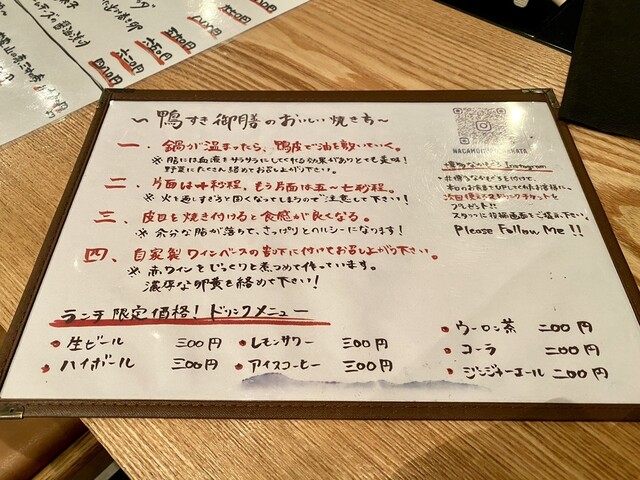 〜鴨すき御膳のおいしい焼き方〜
一、鍋が温まったら、鴨皮で油を敷いていく。
※脂には血液をサラサラにしてくれる効果がありとても美味!
野菜にたくさん絡めてお召し上がり下さい。
二、片面は十秒程、もう片面は五〜七秒程。
※火を通しすぎると固くなってしまうのでご注意して下さい!
三、皮目を焼き付けると食感が良くなる。
※余分な脂が落ちて、さっぱりとヘルシーになります!
四、自家製ワインベースの割下に付けてお召し上がり下さい。
※赤ワインをじっくりと煮つめて作っています。
濃厚な卵黄を絡めて下さい!
Instagram
次回使えるドリンクチケットを
プレゼント!!
スタッフに投稿画面をご提示下さい。
Please Follow Me!!
ランチ限定価格!ドリンクメニュー
・生ビール 三〇〇円
・ハイボール 三〇〇円
・レモンサワー 三〇〇円
・アイスコーヒー 三〇〇円
・ウーロン茶 二〇〇円
・コーラ 二〇〇円
・ジンジャーエール 二〇〇円